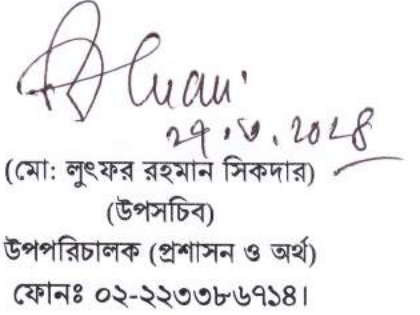 (মো: লুৎফর রহমান সিকদার)
(উপসচিব)
উপপরিচালক (প্রশাসন ও অর্থ)
ফোনঃ ০২-২২৩৩৮৬৭১৪।